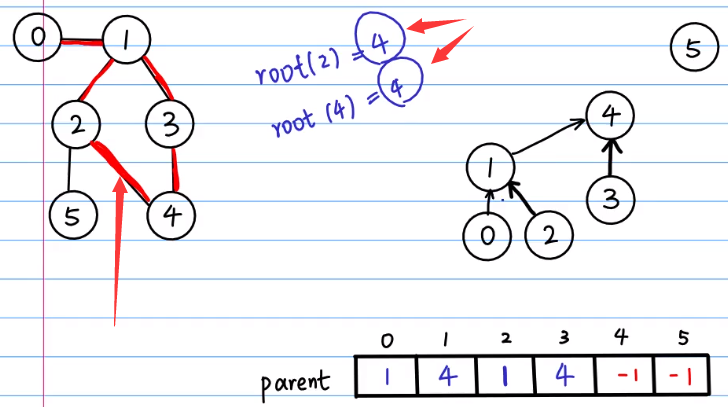 0 1
2 3
5 4
root(2) = 4
root (4) = 4
5
4
1
3
0 2
0 1 2 3 4 5
parent 1 4 1 4 -1 -1